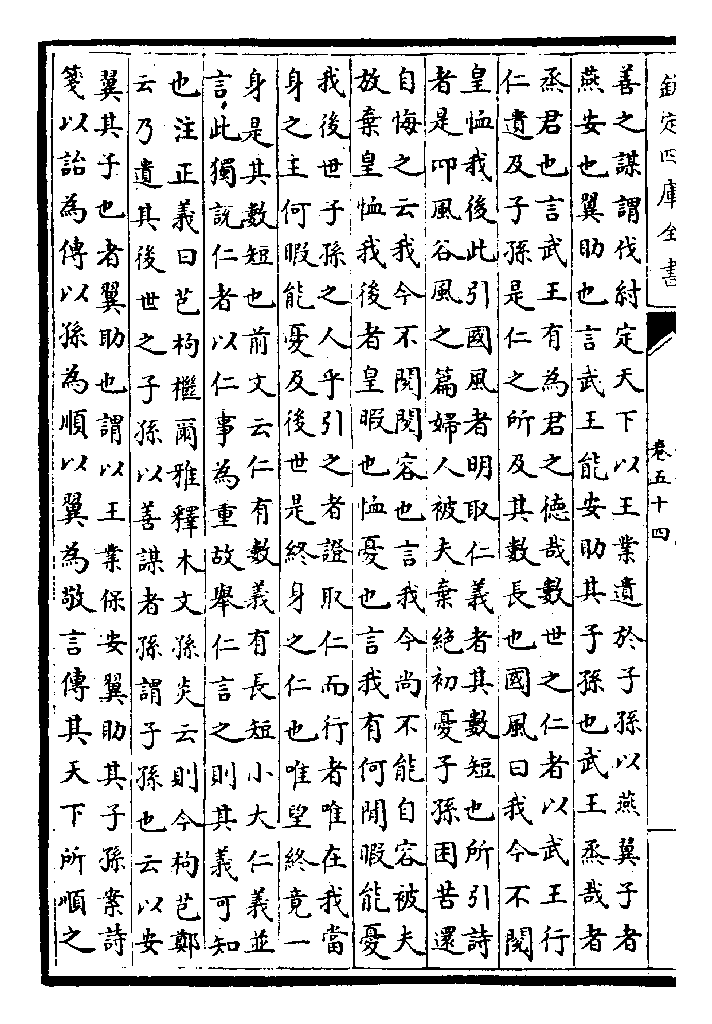 欽定四庫全書
卷五十四
善之謀謂伐紂定天下以王業遺於子孫以燕翼子者
燕安也翼助也言武王能安助其子孫也武王烝哉者
烝君也言武王有為君之徳哉數世之仁者以武王行
仁遺及子孫是仁之所及其數長也國風曰我今不閱
皇恤我後此引國風者明取仁義者其數短也所引詩
者是邶風谷風之篇婦人被夫棄絶初憂子孫困苦還
自悔之云我今不閱閱容也言我今尚不能自容被夫
放棄皇恤我後者皇暇也恤憂也言我有何閒暇能憂
我後世子孫之人乎引之者證取仁而行者唯在我當
身之主何暇能憂及後世是終身之仁也唯望終竟一
身是其數短也前文云仁有數義有長短小大仁義並
言此獨説仁者以仁事為重故舉仁言之則其義可知
也注正義曰芑枸檵爾雅釋木文孫炎云則今枸芑鄭
云乃遺其後世之子孫以善謀者孫謂子孫也云以安
翼其子也者翼助也謂以王業保安翼助其子孫案詩
箋以詒為傳以孫為順以翼為敬言傳其天下所順之